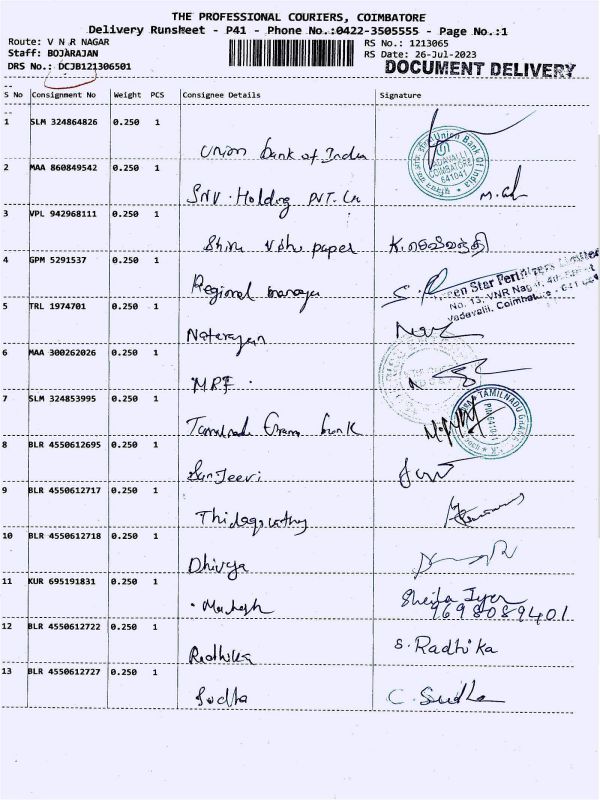 THE PROFESSIONAL COURIERS, COIMBATORE
Delivery Runsheet - P41 - Phone No.:0422-3505555 - Page No.:1
Route: V N R NAGAR
RS No.: 1213065
Staff: BOJARAJAN
RS Date: 26-Jul-2023
DRS No.: DCJB121306501
DOCUMENT DELIVERY
S No Consignment No Weight PCS Consignee Details Signature
1 SLM 324864826 0.250 1
Union Bank of India
Union Bank Of India
VADAVALLI
COIMBATORE
641041
2 MAA 860849542 0.250 1
SNV. Holding PVT. Ln
3 VPL 942968111 0.250 1
Shiru Vshu paper
4 GPM 5291537 0.250 1
Regional manager
Green Star Fertilizers Limited
No. 13, VNR Nagar, 4th Street
Vadavalli, Coimbatore - 641 041
5 TRL 1974701 0.250 1
Natarajan
6 MAA 300262026 0.250 1
MRF.
7 SLM 324853995 0.250 1
Tamilnadu Grama bank
TAMILNADU GRAMA
8 BLR 4550612695 0.250 1
Sanjeevi
9 BLR 4550612717 0.250 1
10 BLR 4550612718 0.250 1
Dhivya
11 KUR 695191831 0.250 1
. Mahesh
Sheila Iyer
9698089401
12 BLR 4550612722 0.250 1
Radhika S. Radhika
13 BLR 4550612727 0.250 1
Sudha C. Sudha